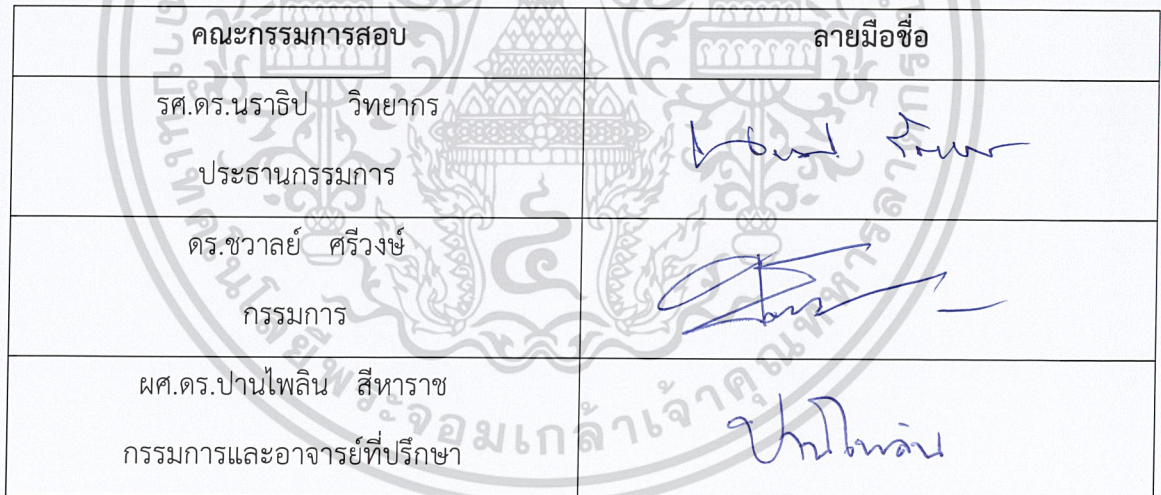 คณะกรรมการสอบ ลายมือชื่อ
รศ.ดร.นราธิป วิทยากร
ประธานกรรมการ
ดร.ชวาลย์ ศรีวงษ์
กรรมการ
ผศ.ดร.ปานไพลิน สีหาราช
กรรมการและอาจารย์ที่ปรึกษา
ปานไพลิน
พระจอมเกล้าเจ้าคุณทหารลาดกระบัง